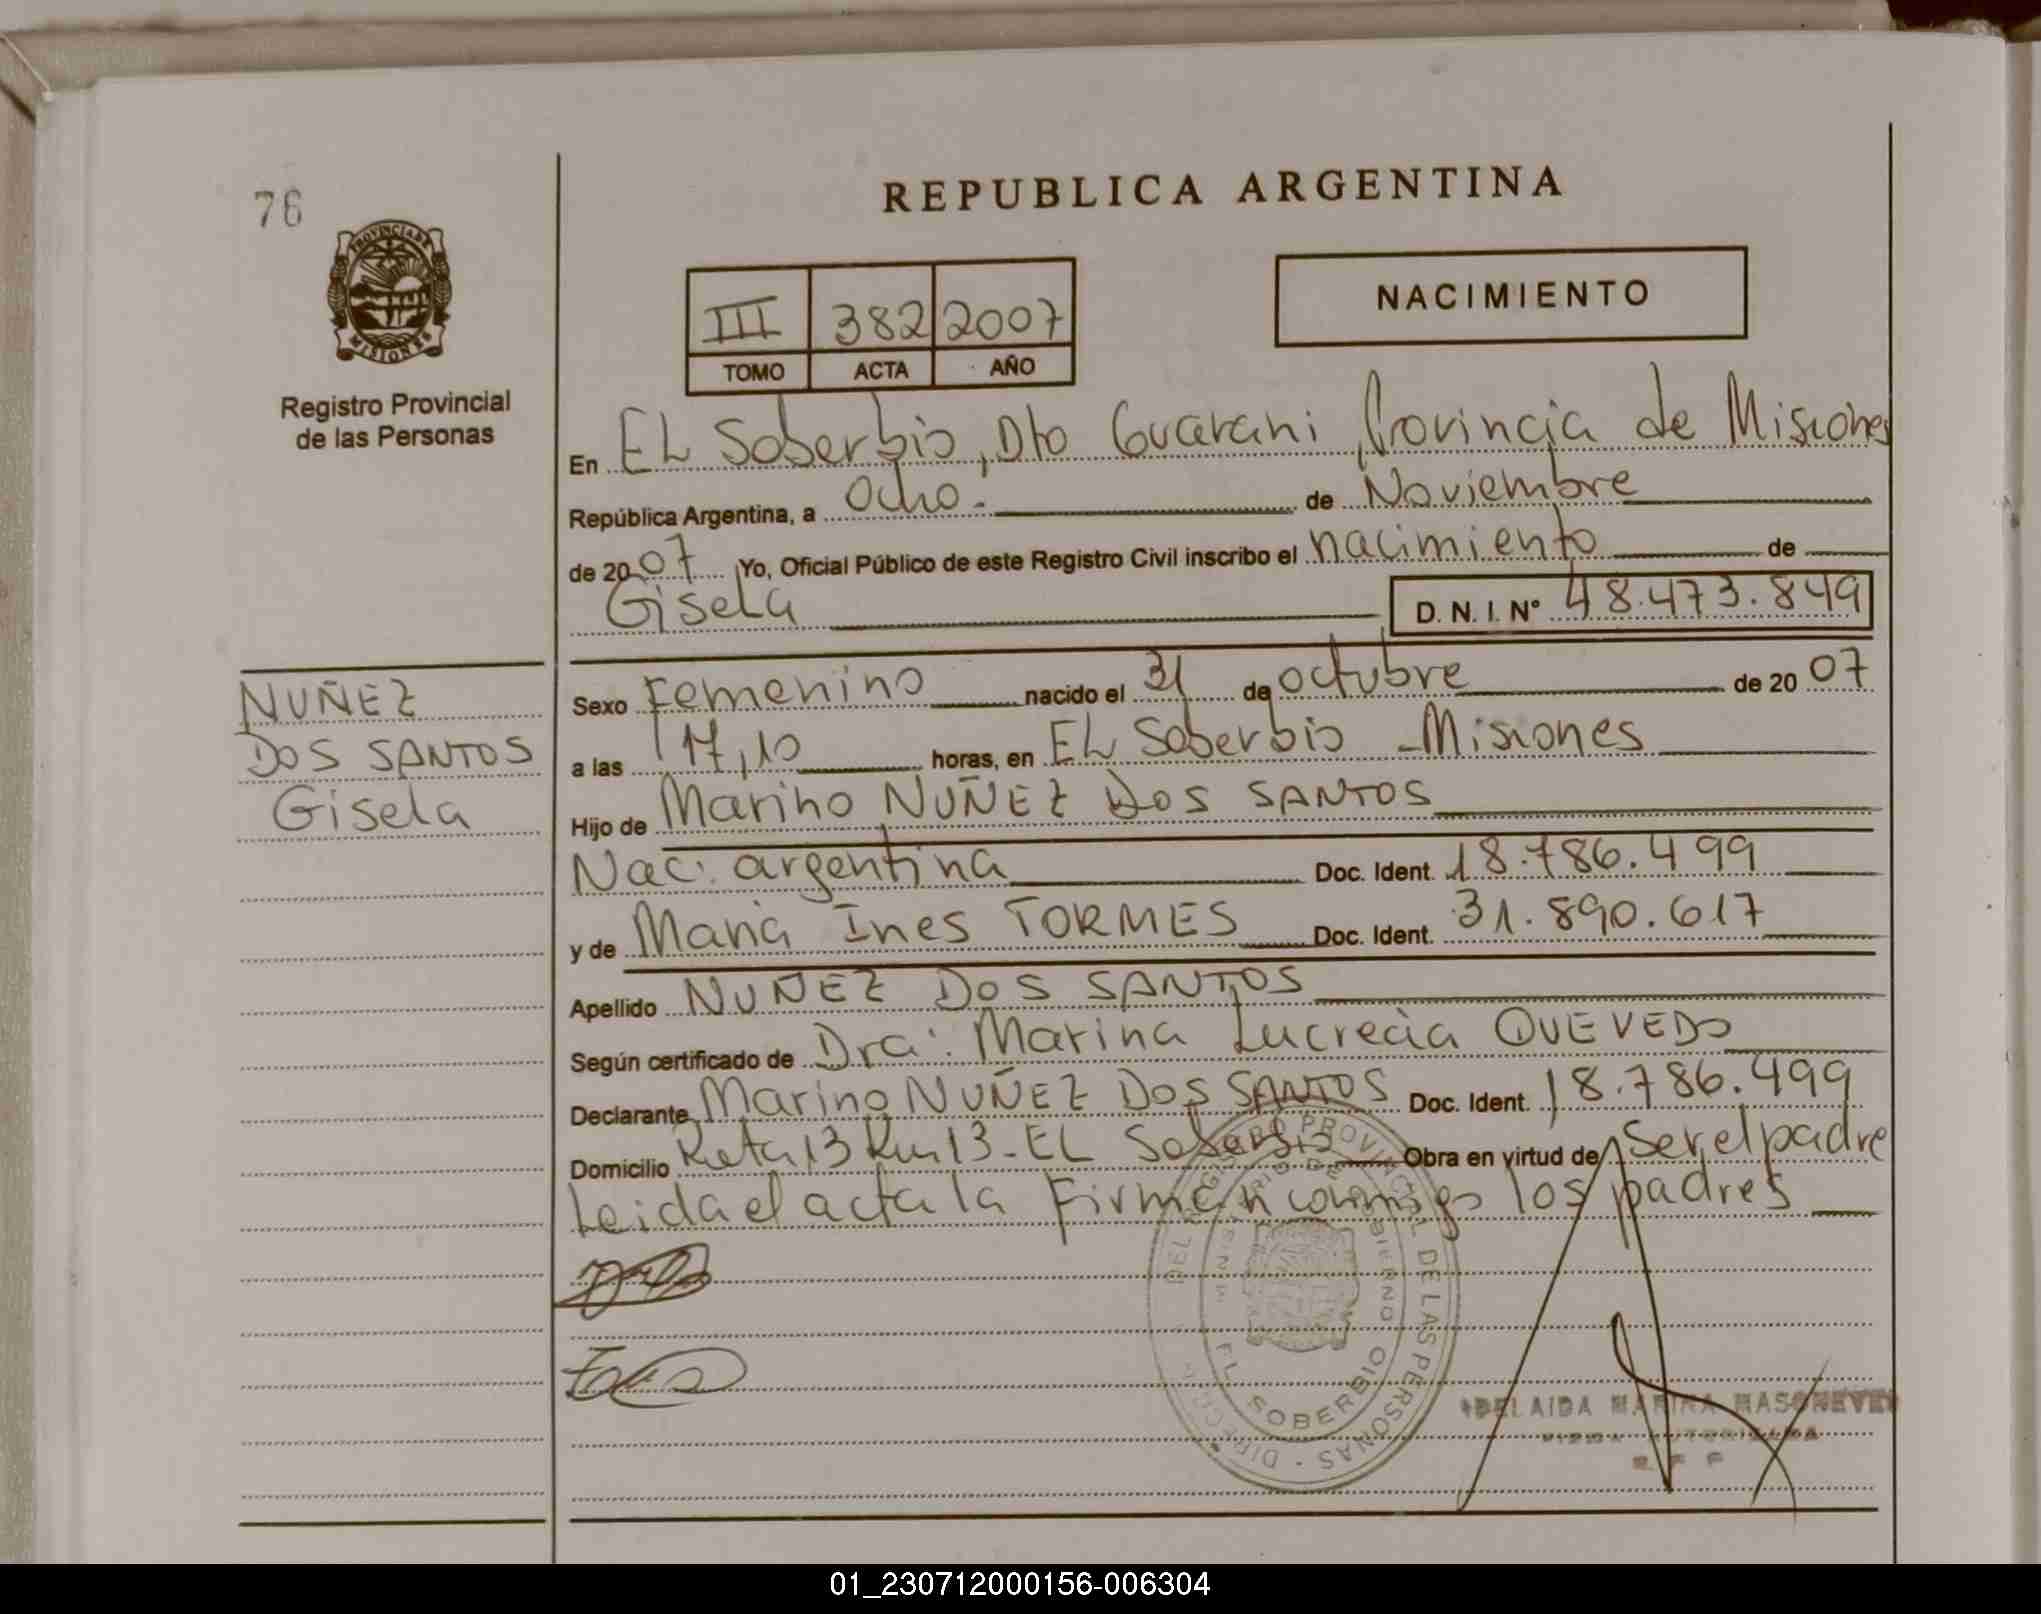 76
PROVINCIA DE
MISIONES
Registro Provincial
de las Personas
REPUBLICA ARGENTINA
III 382 2007
TOMO ACTA AÑO
NACIMIENTO
En EL Soberbio, Dto Guarani, Provincia de Misiones
República Argentina, a Ocho.- de Noviembre
de 2007 Yo, Oficial Público de este Registro Civil inscribo el nacimiento de
Gisela D. N. I. N° 48.473.849
NUÑEZ
DOS SANTOS
Gisela
Sexo Femenino nacido el 31 de octubre de 2007
a las 17,10 horas, en EL Soberbio - Misiones
Hijo de Marino NUÑEZ DOS SANTOS
Nac: argentina Doc. Ident. 18.786.499
y de Maria Ines TORMES Doc. Ident. 31.890.617
Apellido NUÑEZ DOS SANTOS
Según certificado de Dra: Marina Lucrecia QUEVEDO
Declarante Marino NUÑEZ DOS SANTOS Doc. Ident. 18.786.499
Domicilio Ruta 13 Km 13 - EL Soberbio Obra en virtud de Ser el padre
Leida el acta la Firman conmigo los padres
DEL REGISTRO PROVINCIAL DE LAS PERSONAS
EL SOBERBIO
ADELAIDA MARINA
01_230712000156-006304